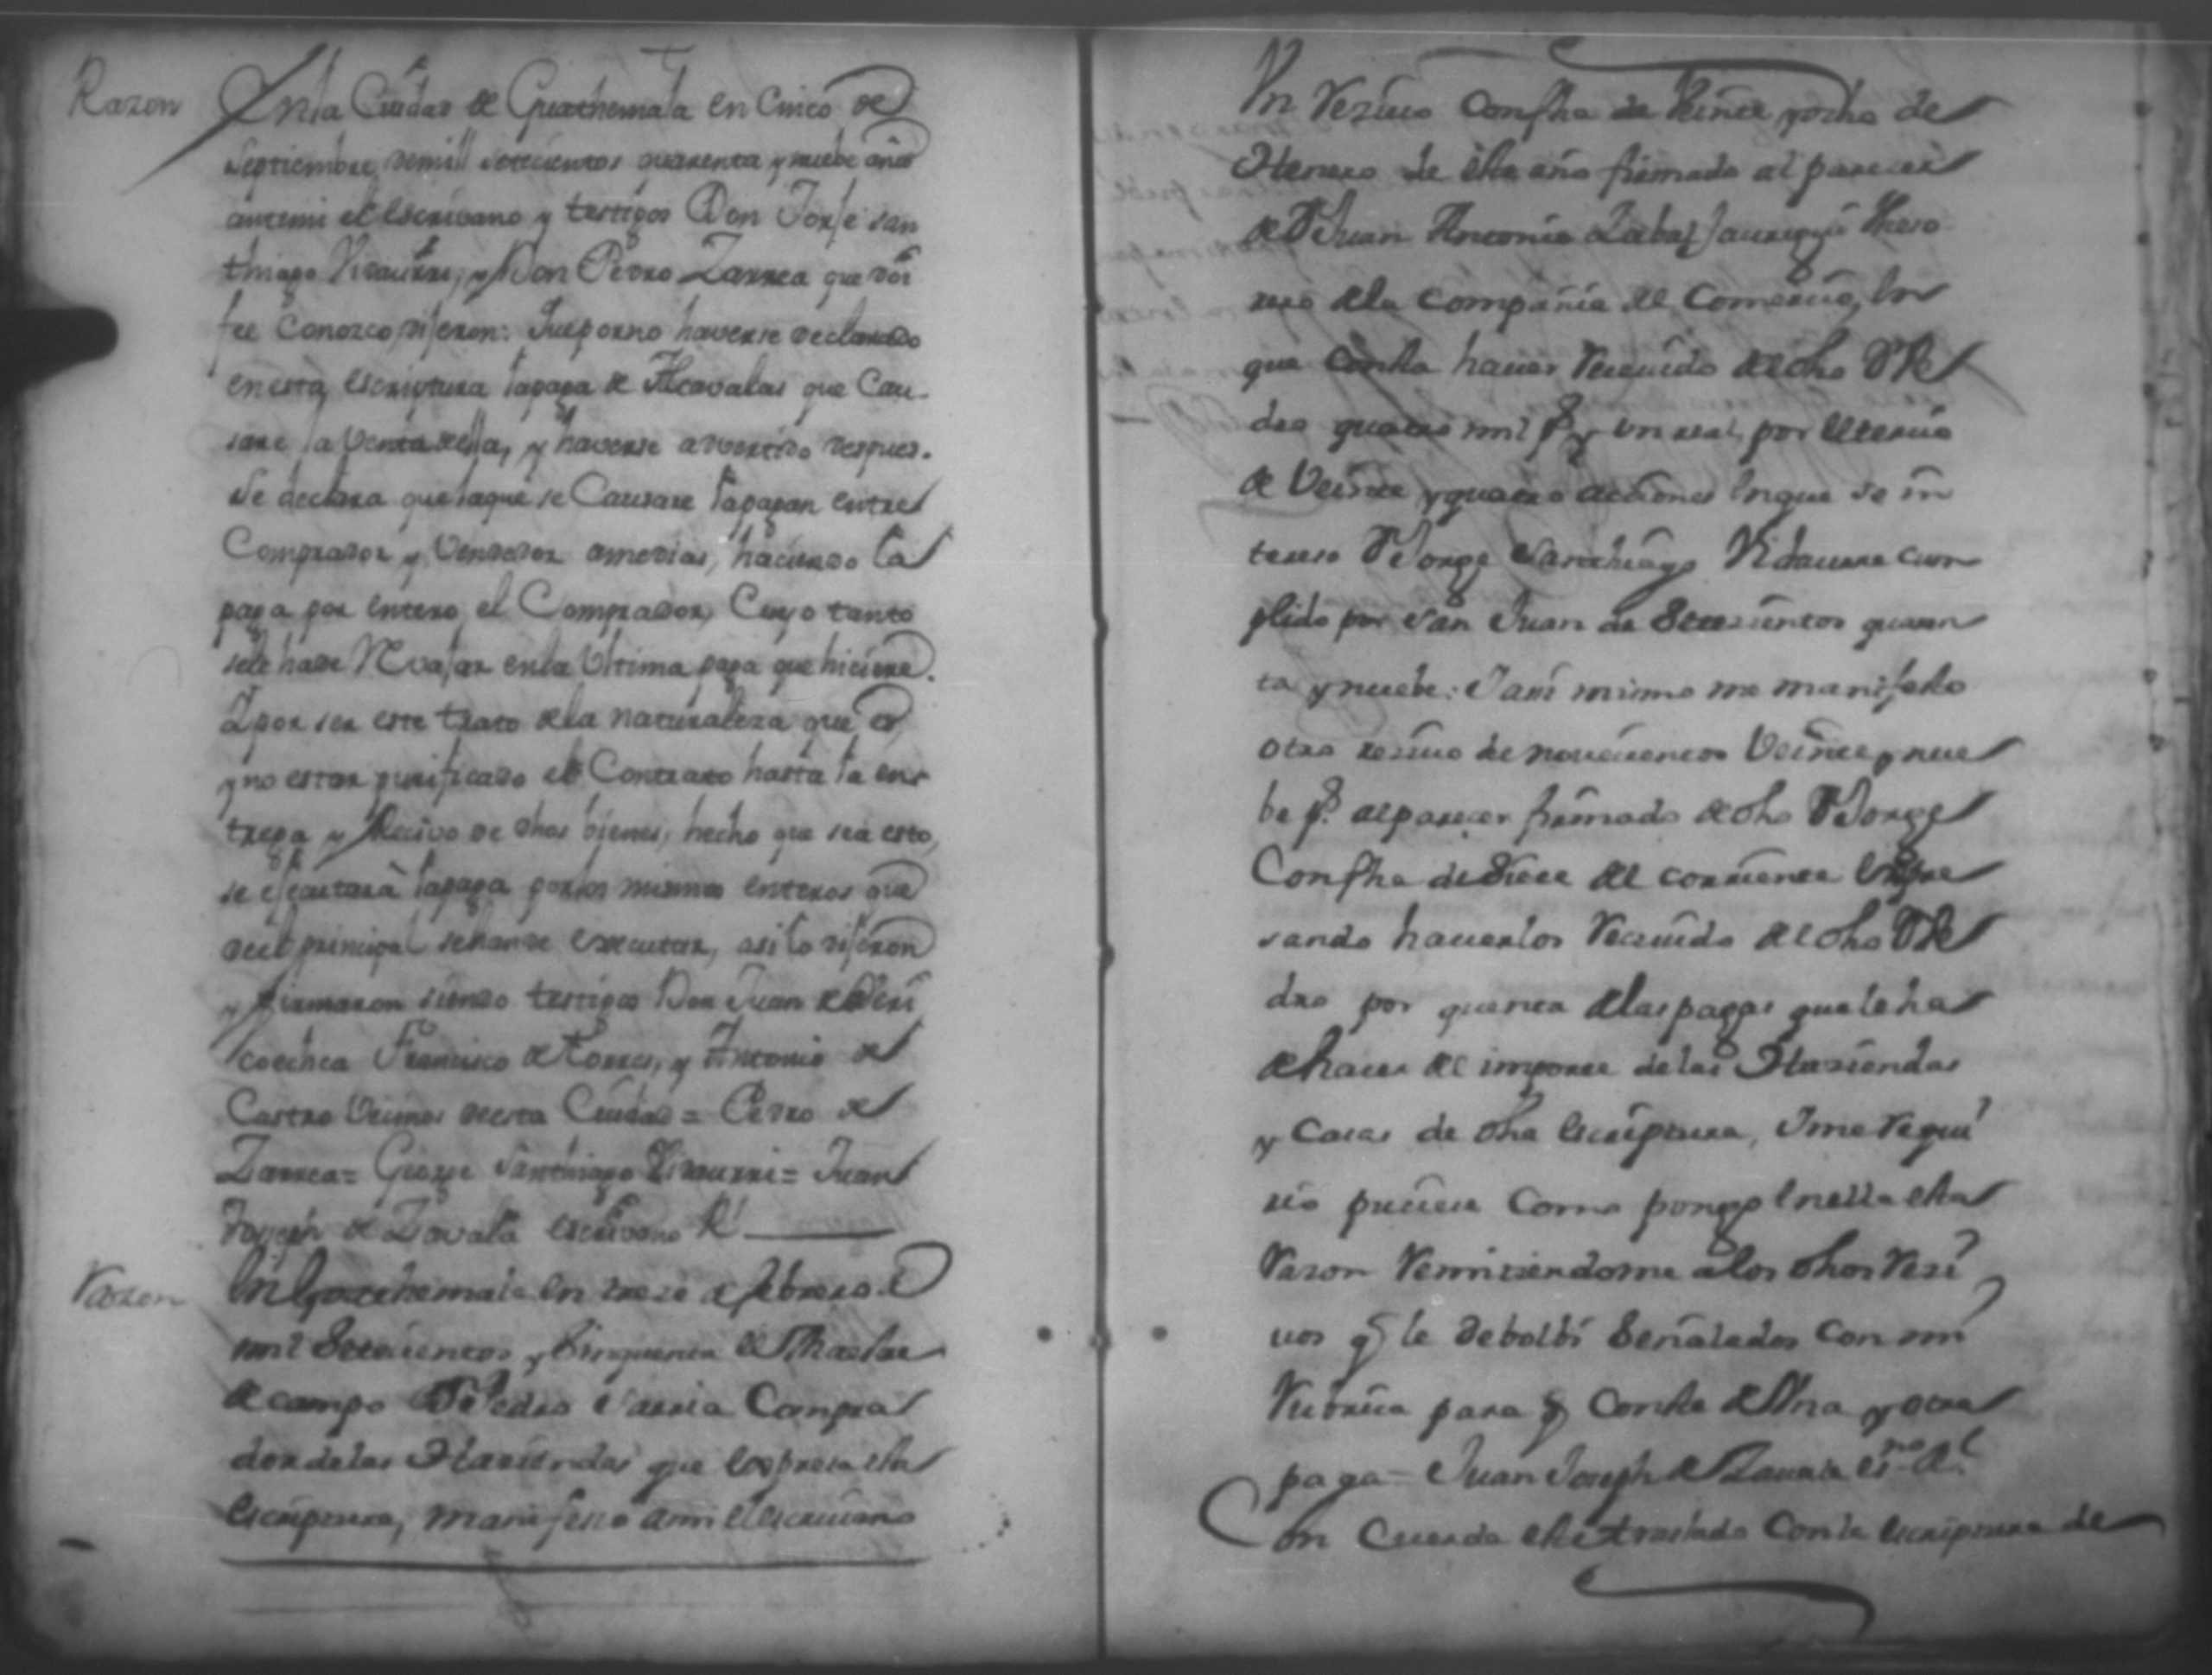 Razon
En la Ciudad de Guathemala en Cinco de
Septiembre demill setecientos quarenta y nuebe años
antemi el escrivano y testigos Don Jorje san
thiago Vidaurre, y Don Pedro Zarrea que doi
fee Conozco, dixeron: Que por no haverse declarado
en esta escriptura la paga de Alcavalas que Cau-
sare la Venta de ella, y haverse advertido despues.
Se declara que la que se Causare la pagan entre
Comprador y Vendedor amedias, haciendo la
paga por entero el Comprador, Cuyo tanto
sele hade Revajar en la Ultima paga que hiciere.
Y por ser este trato de la naturaleza que es,
y no estar purificado el Contrato hasta la en-
trega y Recivo de dhos bienes, hecho que sea esto,
se ejecutará la paga por los mismos enteros que
del principal se han de executar, asi lo dixeron
y firmaron siendo testigos Don Juan de
coechea Francisco de Torres, y Antonio de
Castro Vecinos de esta Ciudad = Pedro de
Zarrea = George Santhiago Vidaurre = Juan
Joseph de Zavala escrivano Rl
Razon
En Guathemala en trece de febrero de
mil Setecientos y Cinquenta el Maestre
de campo Dn Pedro Sarria Compra
dor de las Haziendas que expresa esta
escriptura, manifesto a mi el escriuano
Un Reziuo con fha de Veinte y ocho de
Henero de este año firmado al parecer
de Dn Juan Antonio Zabas Jauregui Theso
rero de la Compañia de Comercio, en
que consta hauer Receuido de dho Dn Pe
dro quatro mil ps y un real, por el tercio
de Veinte y quatro acciones en que se in
tereso Dn Jorge Santhiago Vidaurre cum
plido por San Juan de Setezientos quaren
ta y nuebe: Y assi mismo me manifesto
otro reziuo de nouecientos Veinte y nue
be ps. al parecer firmado de dho Dn Jorge
Con fha de Siete del corriente expre
sando hauerlos Receuido de dho Dn Pe
dro por quenta de las pagas que le ha
de hacer de importe de las Haziendas
y Casas de dha escriptura, Y me requi
rio pusiese Como pongo en ella esta
Razon Remitiendome a los dhos Rezi
uos q le debolbi Señalados Con mi
Rubrica para q Conste de Una y otra
paga = Juan Joseph de Zauala esno Rl
Con Cuerda este traslado Con la escriptura de